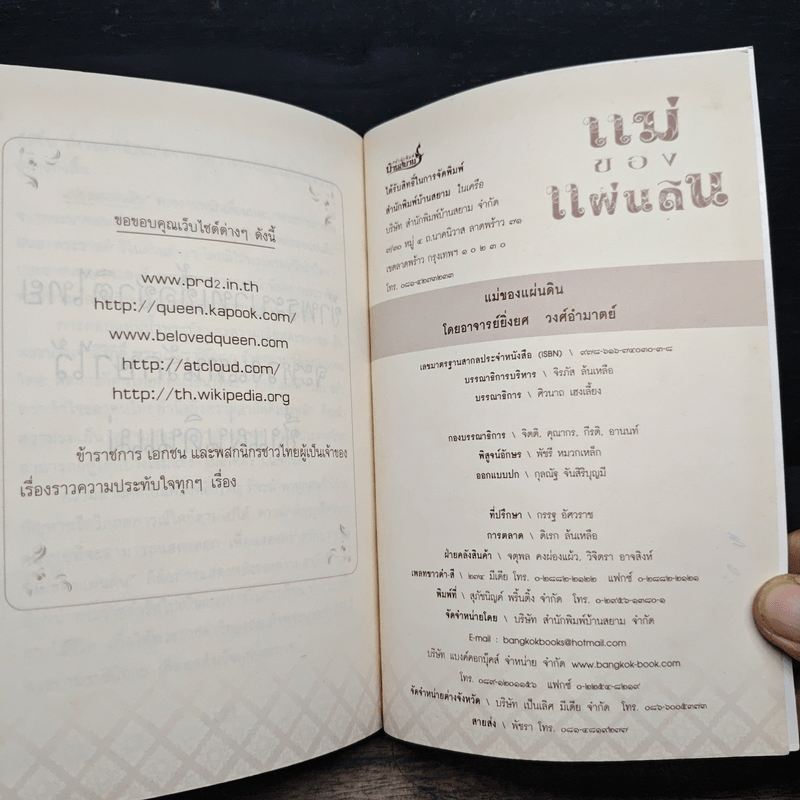 ขอขอบคุณเว็บไซต์ต่างๆ ดังนี้
www.prd2.in.th
http://queen.kapook.com/
www.belovedqueen.com
http://atcloud.com/
http://th.wikipedia.org
ข้าราชการ เอกชน และพสกนิกรชาวไทยผู้เป็นเจ้าของ
เรื่องราวความประทับใจทุกๆ เรื่อง
แม่
ของ
แผ่นดิน
บ้านสยาม
ได้รับสิทธิ์ในการจัดพิมพ์
สำนักพิมพ์บ้านสยาม ในเครือ
บริษัท สำนักพิมพ์บ้านสยาม จำกัด
๗/๓๐ หมู่ ๔ ถ.นาคนิวาส ลาดพร้าว ๗๑
เขตลาดพร้าว กรุงเทพฯ ๑ ๐ ๒ ๓ ๐
โทร. ๐๘๑-๔๒๗๓๒๓๓
แม่ของแผ่นดิน
โดยอาจารย์ยิ่งยศ วงศ์อำมาตย์
เลขมาตรฐานสากลประจำหนังสือ (ISBN) \ ๙๗๘-๖๑๖-๗๔๐๓๐-๓-๘
บรรณาธิการบริหาร \ จิรภัส ล้นเหลือ
บรรณาธิการ \ ศิวนาถ เฮงเลี้ยง
กองบรรณาธิการ \ จิตติ, คุณากร, กีรติ, อานนท์
พิสูจน์อักษร \ พัชรี หมวกเหล็ก
ออกแบบปก \ กุลณัฐ จันสิริบุญมี
ที่ปรึกษา \ กรรฐ อัศวราช
การตลาด \ ดิเรก ล้นเหลือ
ฝ่ายคลังสินค้า \ จตุพล คงผ่องแผ้ว, วิจิตรา อาจสิงห์
เพลทขาวดำ-สี \ ๒๓๔ มีเดีย โทร. ๐-๒๘๘๒-๒๑๒๒ แฟกซ์ ๐-๒๘๘๒-๒๑๒๑
พิมพ์ที่ \ สุภัชนิญค์ พริ้นติ้ง จำกัด โทร. ๐-๒๙๕๖-๑๓๘๐-๑
จัดจำหน่ายโดย \ บริษัท สำนักพิมพ์บ้านสยาม จำกัด
E-mail : bangkokbooks@hotmail.com
บริษัท แบงค์คอกบุ๊คส์ จำหน่าย จำกัด www.bangkok-book.com
โทร. ๐๘๙-๑๒๐๑๑๕๖ แฟกซ์ ๐-๒๒๕๔-๘๒๑๙
จัดจำหน่ายต่างจังหวัด \ บริษัท เป็นเลิศ มีเดีย จำกัด โทร. ๐๘๖-๖๐๐๕๓๗๓
สายส่ง \ พัชรา โทร. ๐๘๑-๔๘๑๙๒๓๗